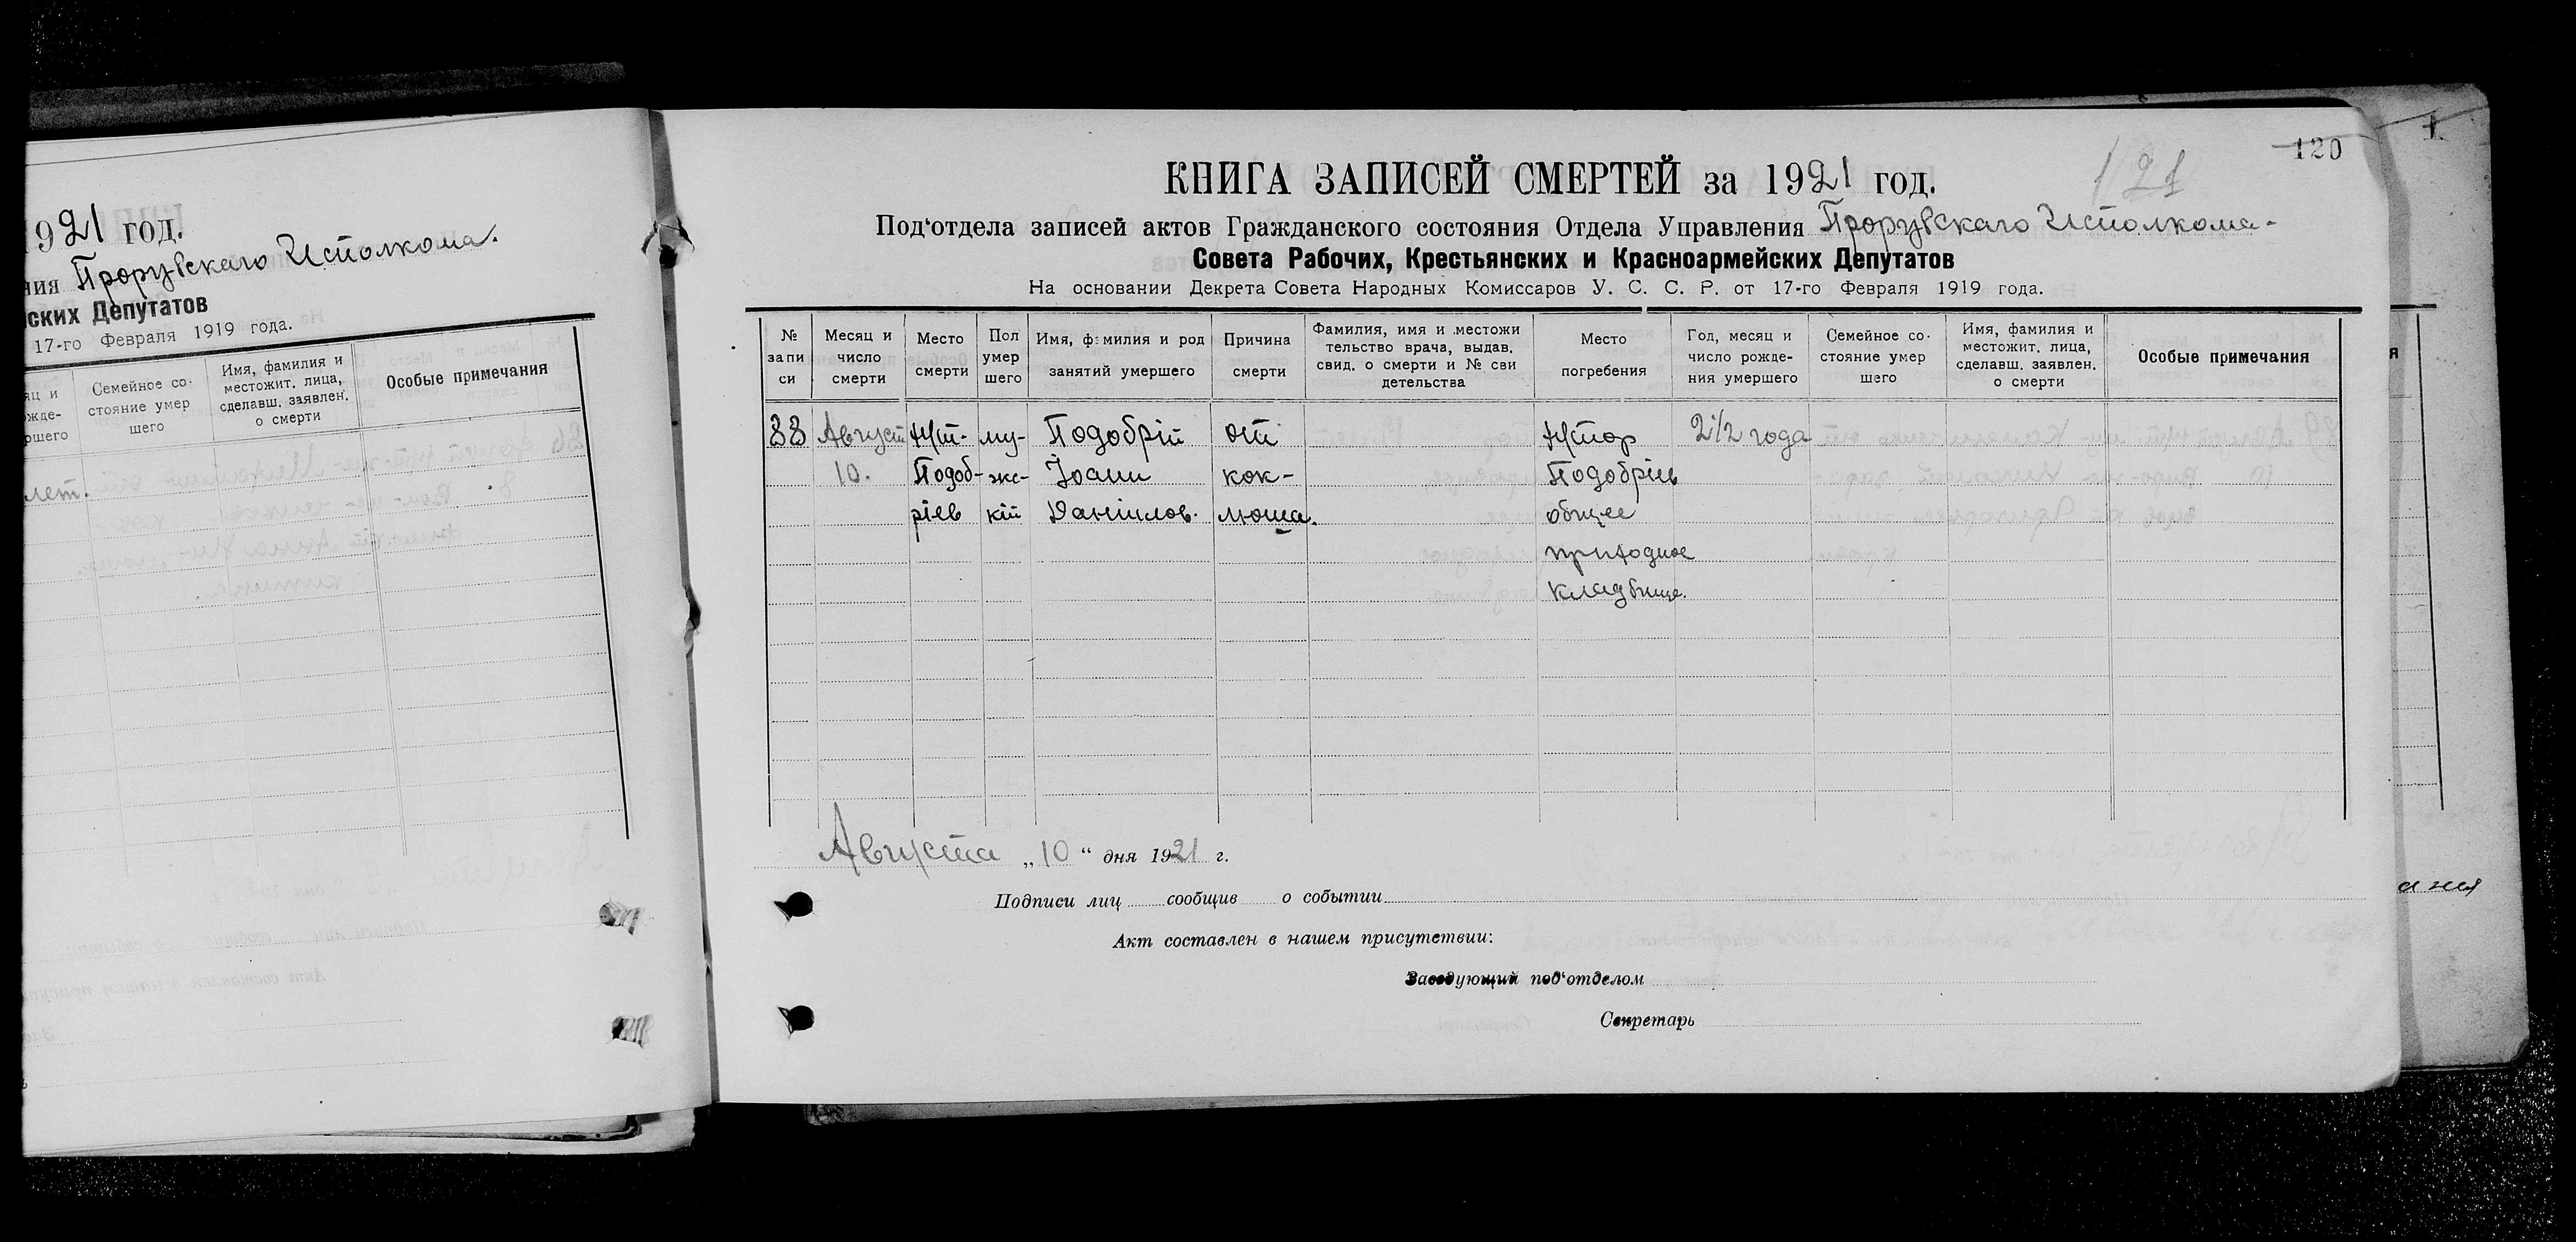 1921 год.
ния Прорубскаго Исполкома.
ских Депутатов
17-го Февраля 1919 года.
яц и
ожде-
ршего
Семейное со-
стояние умер
шего
Имя, фамилия и
местожит. лица,
сделавш. заявлен.
о смерти
Особые примечания
лет.
120
121
КНИГА ЗАПИСЕЙ СМЕРТЕЙ за 1921 год.
Под‘отдела записей актов Гражданского состояния Отдела Управления Прорубскаго Исполкома-
Совета Рабочих, Крестьянских и Красноармейских Депутатов
На основании Декрета Совета Народных Комиссаров У. С. С. Р. от 17-го Февраля 1919 года.
№
запи
си
Месяц и
число
смерти
Место
смерти
Пол
умер
шего
Имя, фамилия и род
занятий умершего
Причина
смерти
Фамилия, имя и местожи
тельство врача, выдав.
свид. о смерти и № сви
детельства
Место
погребения
Год, месяц и
число рожде-
ния умершего
Семейное со-
стояние умер
шего
Имя, фамилия и
местожит. лица,
сделавш. заявлен.
о смерти
Особые примечания
88
Август
10.
Хут-
Подоб-
ріев
му-
жс-
кій
Подобрій
Іоанн
Даніилов.
от
кок-
люша.
Хутор
Подобріев
общее
приходное
кладбище.
2 1/2 года
Августа „10“ дня 1921 г.
Подписи лиц сообщив о событии
Акт составлен в нашем присутствии:
Заведующий под‘отделом
Секретарь